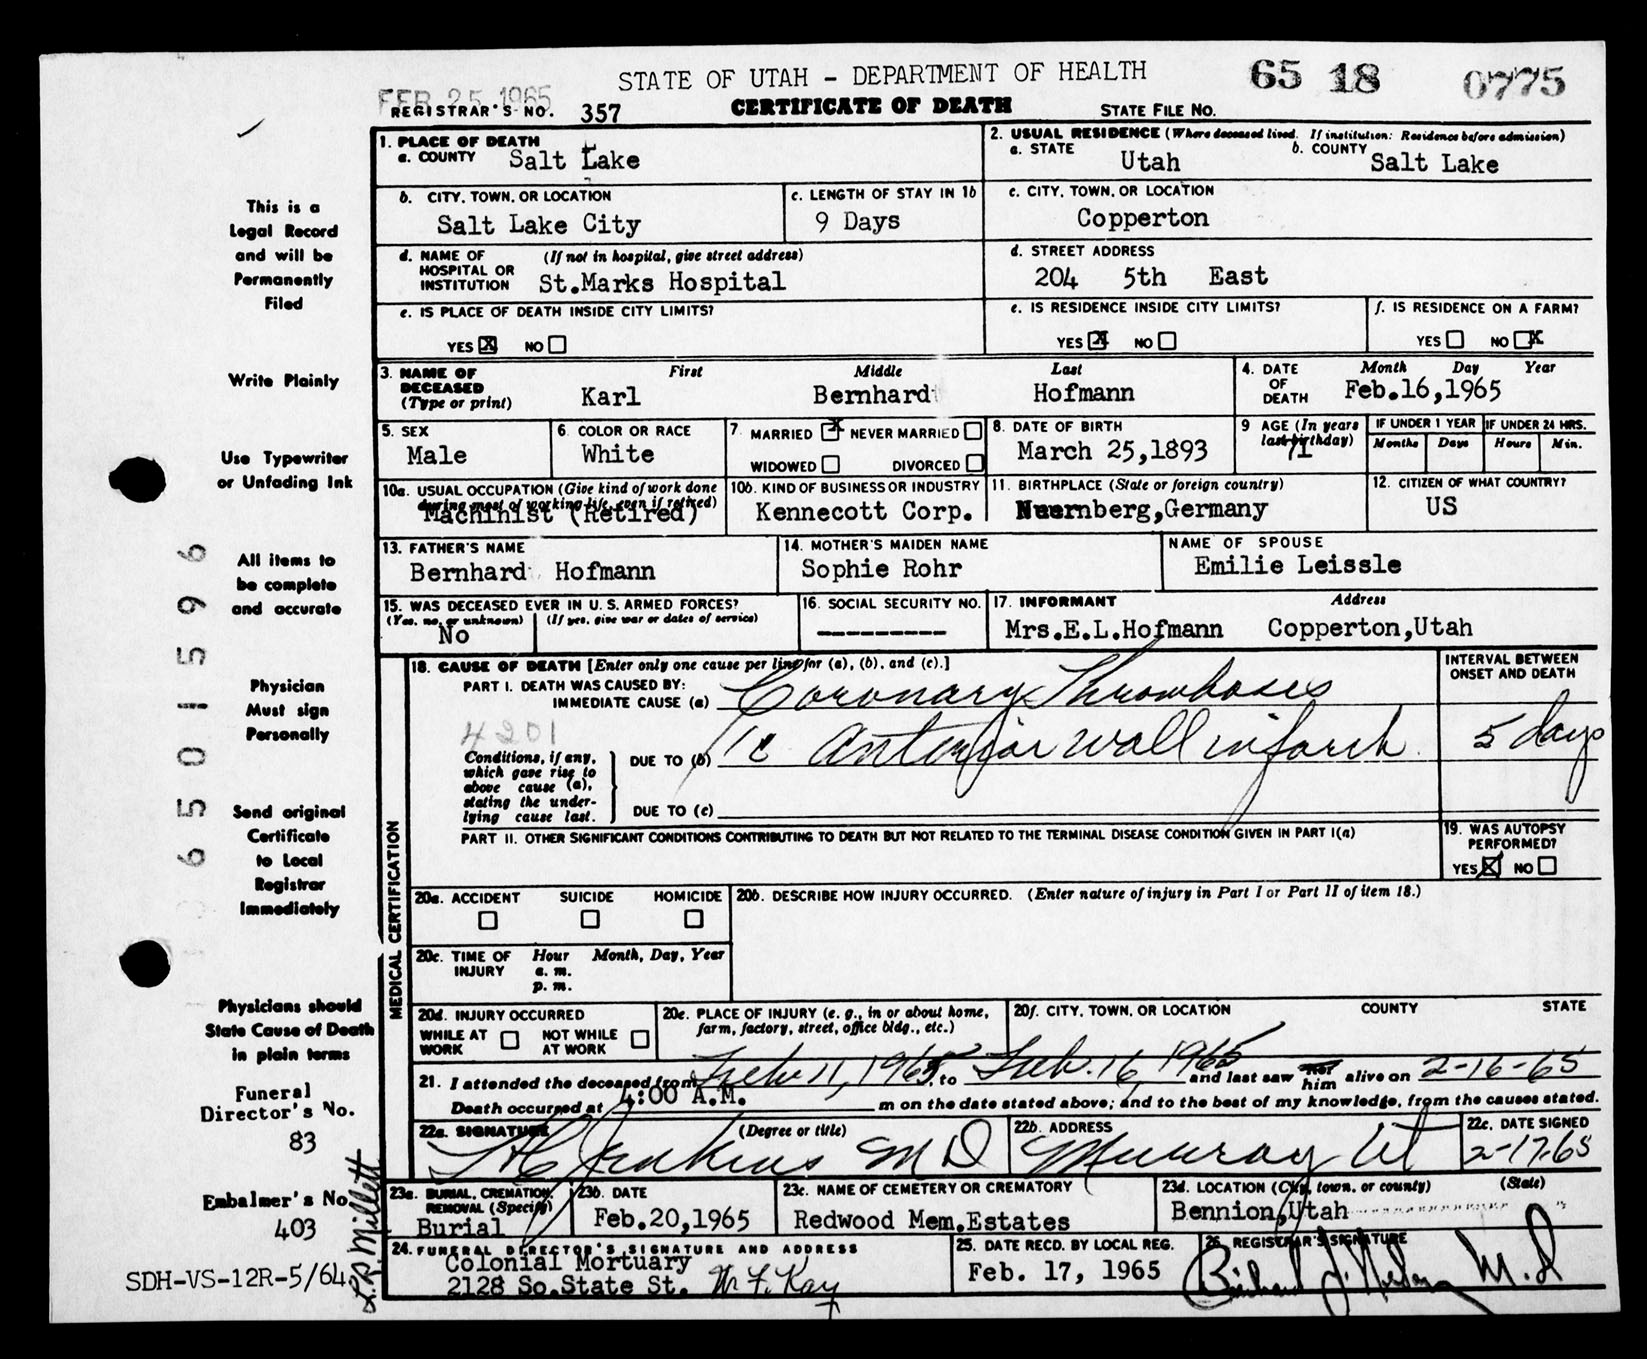 STATE OF UTAH - DEPARTMENT OF HEALTH
65 18 0775
FEB 25 1965
REGISTRAR'S NO. 357
CERTIFICATE OF DEATH
STATE FILE NO.
1. PLACE OF DEATH
a. COUNTY Salt Lake
2. USUAL RESIDENCE (Where deceased lived. If institution: Residence before admission)
a. STATE Utah b. COUNTY Salt Lake
b. CITY, TOWN, OR LOCATION
Salt Lake City
c. LENGTH OF STAY IN 1b
9 Days
c. CITY, TOWN, OR LOCATION
Copperton
d. NAME OF HOSPITAL OR INSTITUTION (If not in hospital, give street address)
St.Marks Hospital
d. STREET ADDRESS
204 5th East
e. IS PLACE OF DEATH INSIDE CITY LIMITS?
YES X NO
e. IS RESIDENCE INSIDE CITY LIMITS?
YES X NO
f. IS RESIDENCE ON A FARM?
YES NO X
3. NAME OF DECEASED (Type or print)
First Middle Last
Karl Bernhard Hofmann
4. DATE OF DEATH
Month Day Year
Feb.16,1965
5. SEX
Male
6. COLOR OR RACE
White
7. MARRIED X NEVER MARRIED
WIDOWED DIVORCED
8. DATE OF BIRTH
March 25,1893
9 AGE (In years last birthday)
71
IF UNDER 1 YEAR
Months Days
IF UNDER 24 HRS.
Hours Min.
10a. USUAL OCCUPATION (Give kind of work done during most of working life, even if retired)
Machinist (Retired)
10b. KIND OF BUSINESS OR INDUSTRY
Kennecott Corp.
11. BIRTHPLACE (State or foreign country)
Nuernberg,Germany
12. CITIZEN OF WHAT COUNTRY?
US
13. FATHER'S NAME
Bernhard Hofmann
14. MOTHER'S MAIDEN NAME
Sophie Rohr
NAME OF SPOUSE
Emilie Leissle
15. WAS DECEASED EVER IN U.S. ARMED FORCES?
(Yes, no, or unknown) (If yes, give war or dates of service)
No
16. SOCIAL SECURITY NO.
---------
17. INFORMANT Address
Mrs.E.L.Hofmann Copperton,Utah
MEDICAL CERTIFICATION
18. CAUSE OF DEATH [Enter only one cause per line for (a), (b), and (c).]
INTERVAL BETWEEN ONSET AND DEATH
PART I. DEATH WAS CAUSED BY:
IMMEDIATE CAUSE (a) Coronary Thrombosis
4201
Conditions, if any, which gave rise to above cause (a), stating the underlying cause last.
DUE TO (b) c anterior wall infarct 5 days
DUE TO (c)
PART II. OTHER SIGNIFICANT CONDITIONS CONTRIBUTING TO DEATH BUT NOT RELATED TO THE TERMINAL DISEASE CONDITION GIVEN IN PART I(a)
19. WAS AUTOPSY PERFORMED?
YES X NO
20a. ACCIDENT SUICIDE HOMICIDE
20b. DESCRIBE HOW INJURY OCCURRED. (Enter nature of injury in Part I or Part II of item 18.)
20c. TIME OF INJURY Hour Month, Day, Year
a. m.
p. m.
20d. INJURY OCCURRED
WHILE AT WORK NOT WHILE AT WORK
20e. PLACE OF INJURY (e. g., in or about home, farm, factory, street, office bldg., etc.)
20f. CITY, TOWN, OR LOCATION COUNTY STATE
21. I attended the deceased from Feb 11, 1965, to Feb. 16, 1965 and last saw her him alive on 2-16-65
Death occurred at 4:00 A.M. m on the date stated above; and to the best of my knowledge, from the causes stated.
22a. SIGNATURE (Degree or title)
Jenkins MD
22b. ADDRESS
Murray Ut
22c. DATE SIGNED
2-17-65
23a. BURIAL, CREMATION, REMOVAL (Specify)
Burial
23b. DATE
Feb.20,1965
23c. NAME OF CEMETERY OR CREMATORY
Redwood Mem.Estates
23d. LOCATION (City, town, or county) (State)
Bennion,Utah
24. FUNERAL DIRECTOR'S SIGNATURE AND ADDRESS
Colonial Mortuary
2128 So.State St. W. F. Kay
25. DATE RECD. BY LOCAL REG.
Feb. 17, 1965
26. REGISTRAR'S SIGNATURE
M.D
This is a
Legal Record
and will be
Permanently
Filed
Write Plainly
Use Typewriter
or Unfading Ink
All items to
be complete
and accurate
Physician
Must sign
Personally
Send original
Certificate
to Local
Registrar
Immediately
Physicians should
State Cause of Death
in plain terms
Funeral
Director's No.
83
Embalmer's No.
403
Millett
SDH-VS-12R-5/64
6501596